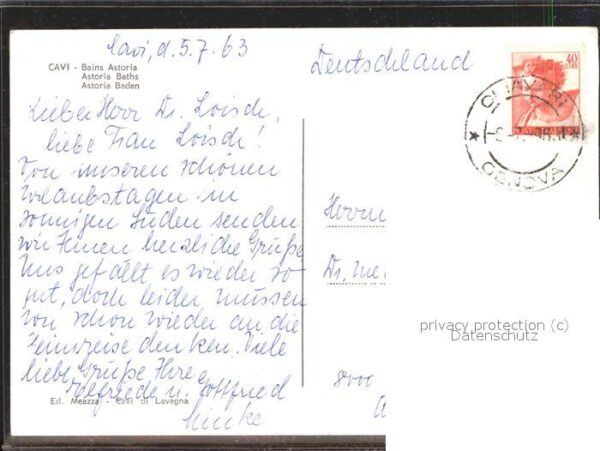 Cavi, d. 5.7.63
CAVI - Bains Astoria
Astoria Baths
Astoria Baden
Lieber Herr Dr. Loisch,
liebe Frau Loisch!
Von unseren schönen
Urlaubstagen im
sonnigen Süden senden
wir Ihnen herzliche Grüße
Uns gefällt es wieder so
gut, doch leider müssen
wir schon wieder an die
Heimreise denken. Viele
liebe Grüße Ihre
Elfriede u. Gottfried
Ed. Meazza - Cavi di Lavagna
Deutschland
40
CHIAVARI
GENOVA
Herrn
Dr. me
8000
privacy protection (c)
Datenschutz